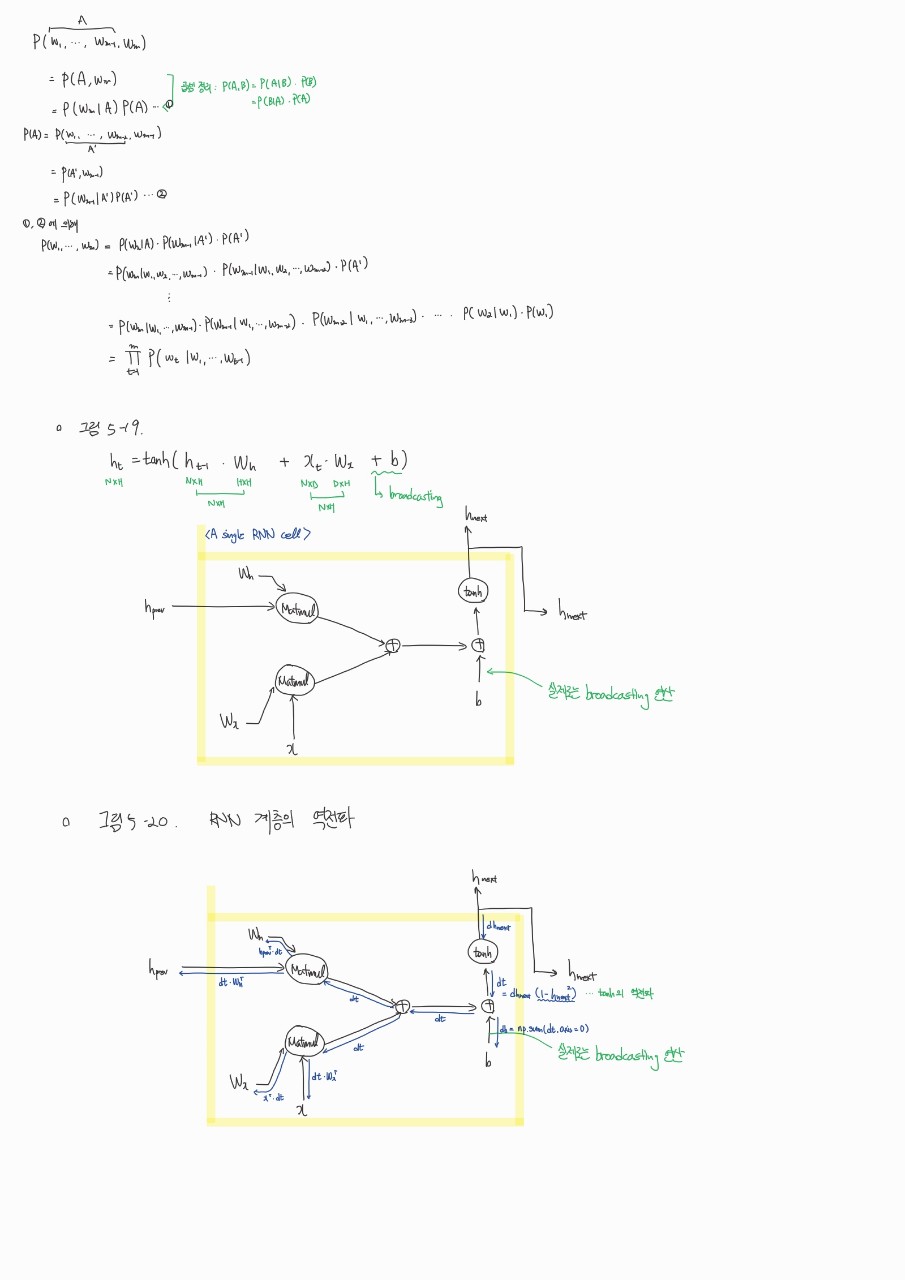 A
P(w₁, ⋯, wₘ₋₁, wₘ)
= P(A, wₘ)
= P(wₘ | A) P(A) ⋯ ①
곱셈 정리 : P(A,B) = P(A|B) · P(B)
= P(B|A) · P(A)
P(A) = P(w₁, ⋯, wₘ₋₂, wₘ₋₁)
A'
= P(A', wₘ₋₁)
= P(wₘ₋₁ | A') P(A') ⋯ ②
①, ②에 의해
P(w₁, ⋯, wₘ) = P(wₘ|A) · P(wₘ₋₁|A') · P(A')
= P(wₘ|w₁, w₂, ⋯, wₘ₋₁) · P(wₘ₋₁|w₁, w₂, ⋯, wₘ₋₂) · P(A')
⋮
= P(wₘ|w₁, ⋯, wₘ₋₁) · P(wₘ₋₁|w₁, ⋯, wₘ₋₂) · P(wₘ₋₂|w₁, ⋯, wₘ₋₃) · ⋯ · P(w₂|w₁) · P(w₁)
= ∏ᵐₜ₌₁ P(wₜ | w₁, ⋯, wₜ₋₁)
o 그림 5-19.
hₜ = tanh( hₜ₋₁ · Wₕ + xₜ · Wₓ + b)
N×H N×H H×H N×D D×H
N×H N×H
broadcasting
hnext
<A single RNN cell>
Wh
tanh
hprev
Matmul
hnext
+ +
Matmul
실제로는 broadcasting 연산
b
Wx
x
o 그림 5-20. RNN 계층의 역전파
hnext
Wh
dhnext
hprevᵀ·dt
tanh
hprev
Matmul
hnext
dt·Whᵀ
dt
dt
= dhnext (1-hnext²) ⋯ tanh의 역전파
+ +
dt
db = np.sum(dt, axis=0)
Matmul
dt
실제로는 broadcasting 연산
b
dt·Wxᵀ
Wx
xᵀ·dt
x